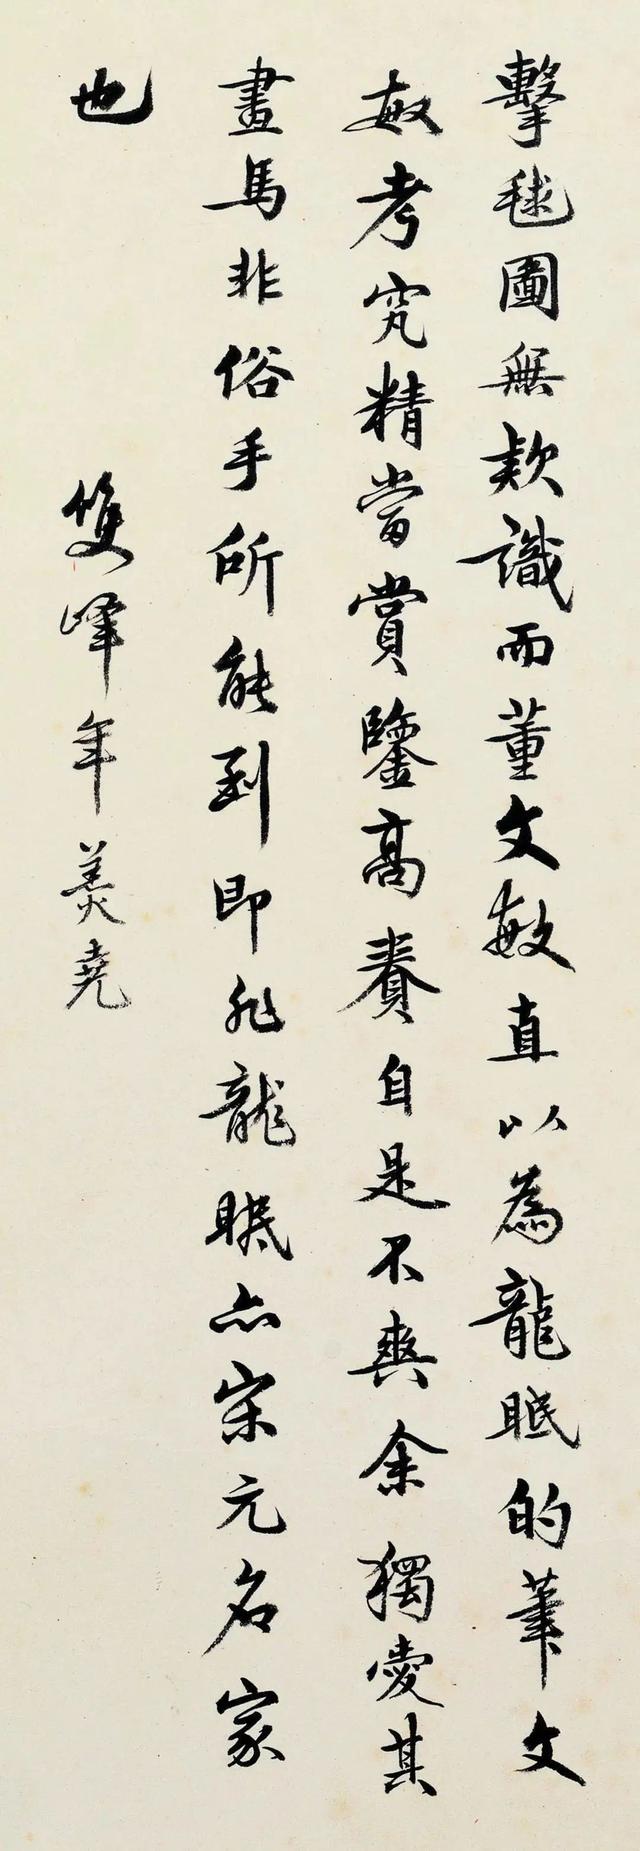 擊毬圖無款識而董文敏直以為龍眠的筆文
敏考究精當賞鑒高賽自是不爽余獨愛其
畫馬非俗手所能到即非龍眠亦宋元名家
也
雙峰年羹堯